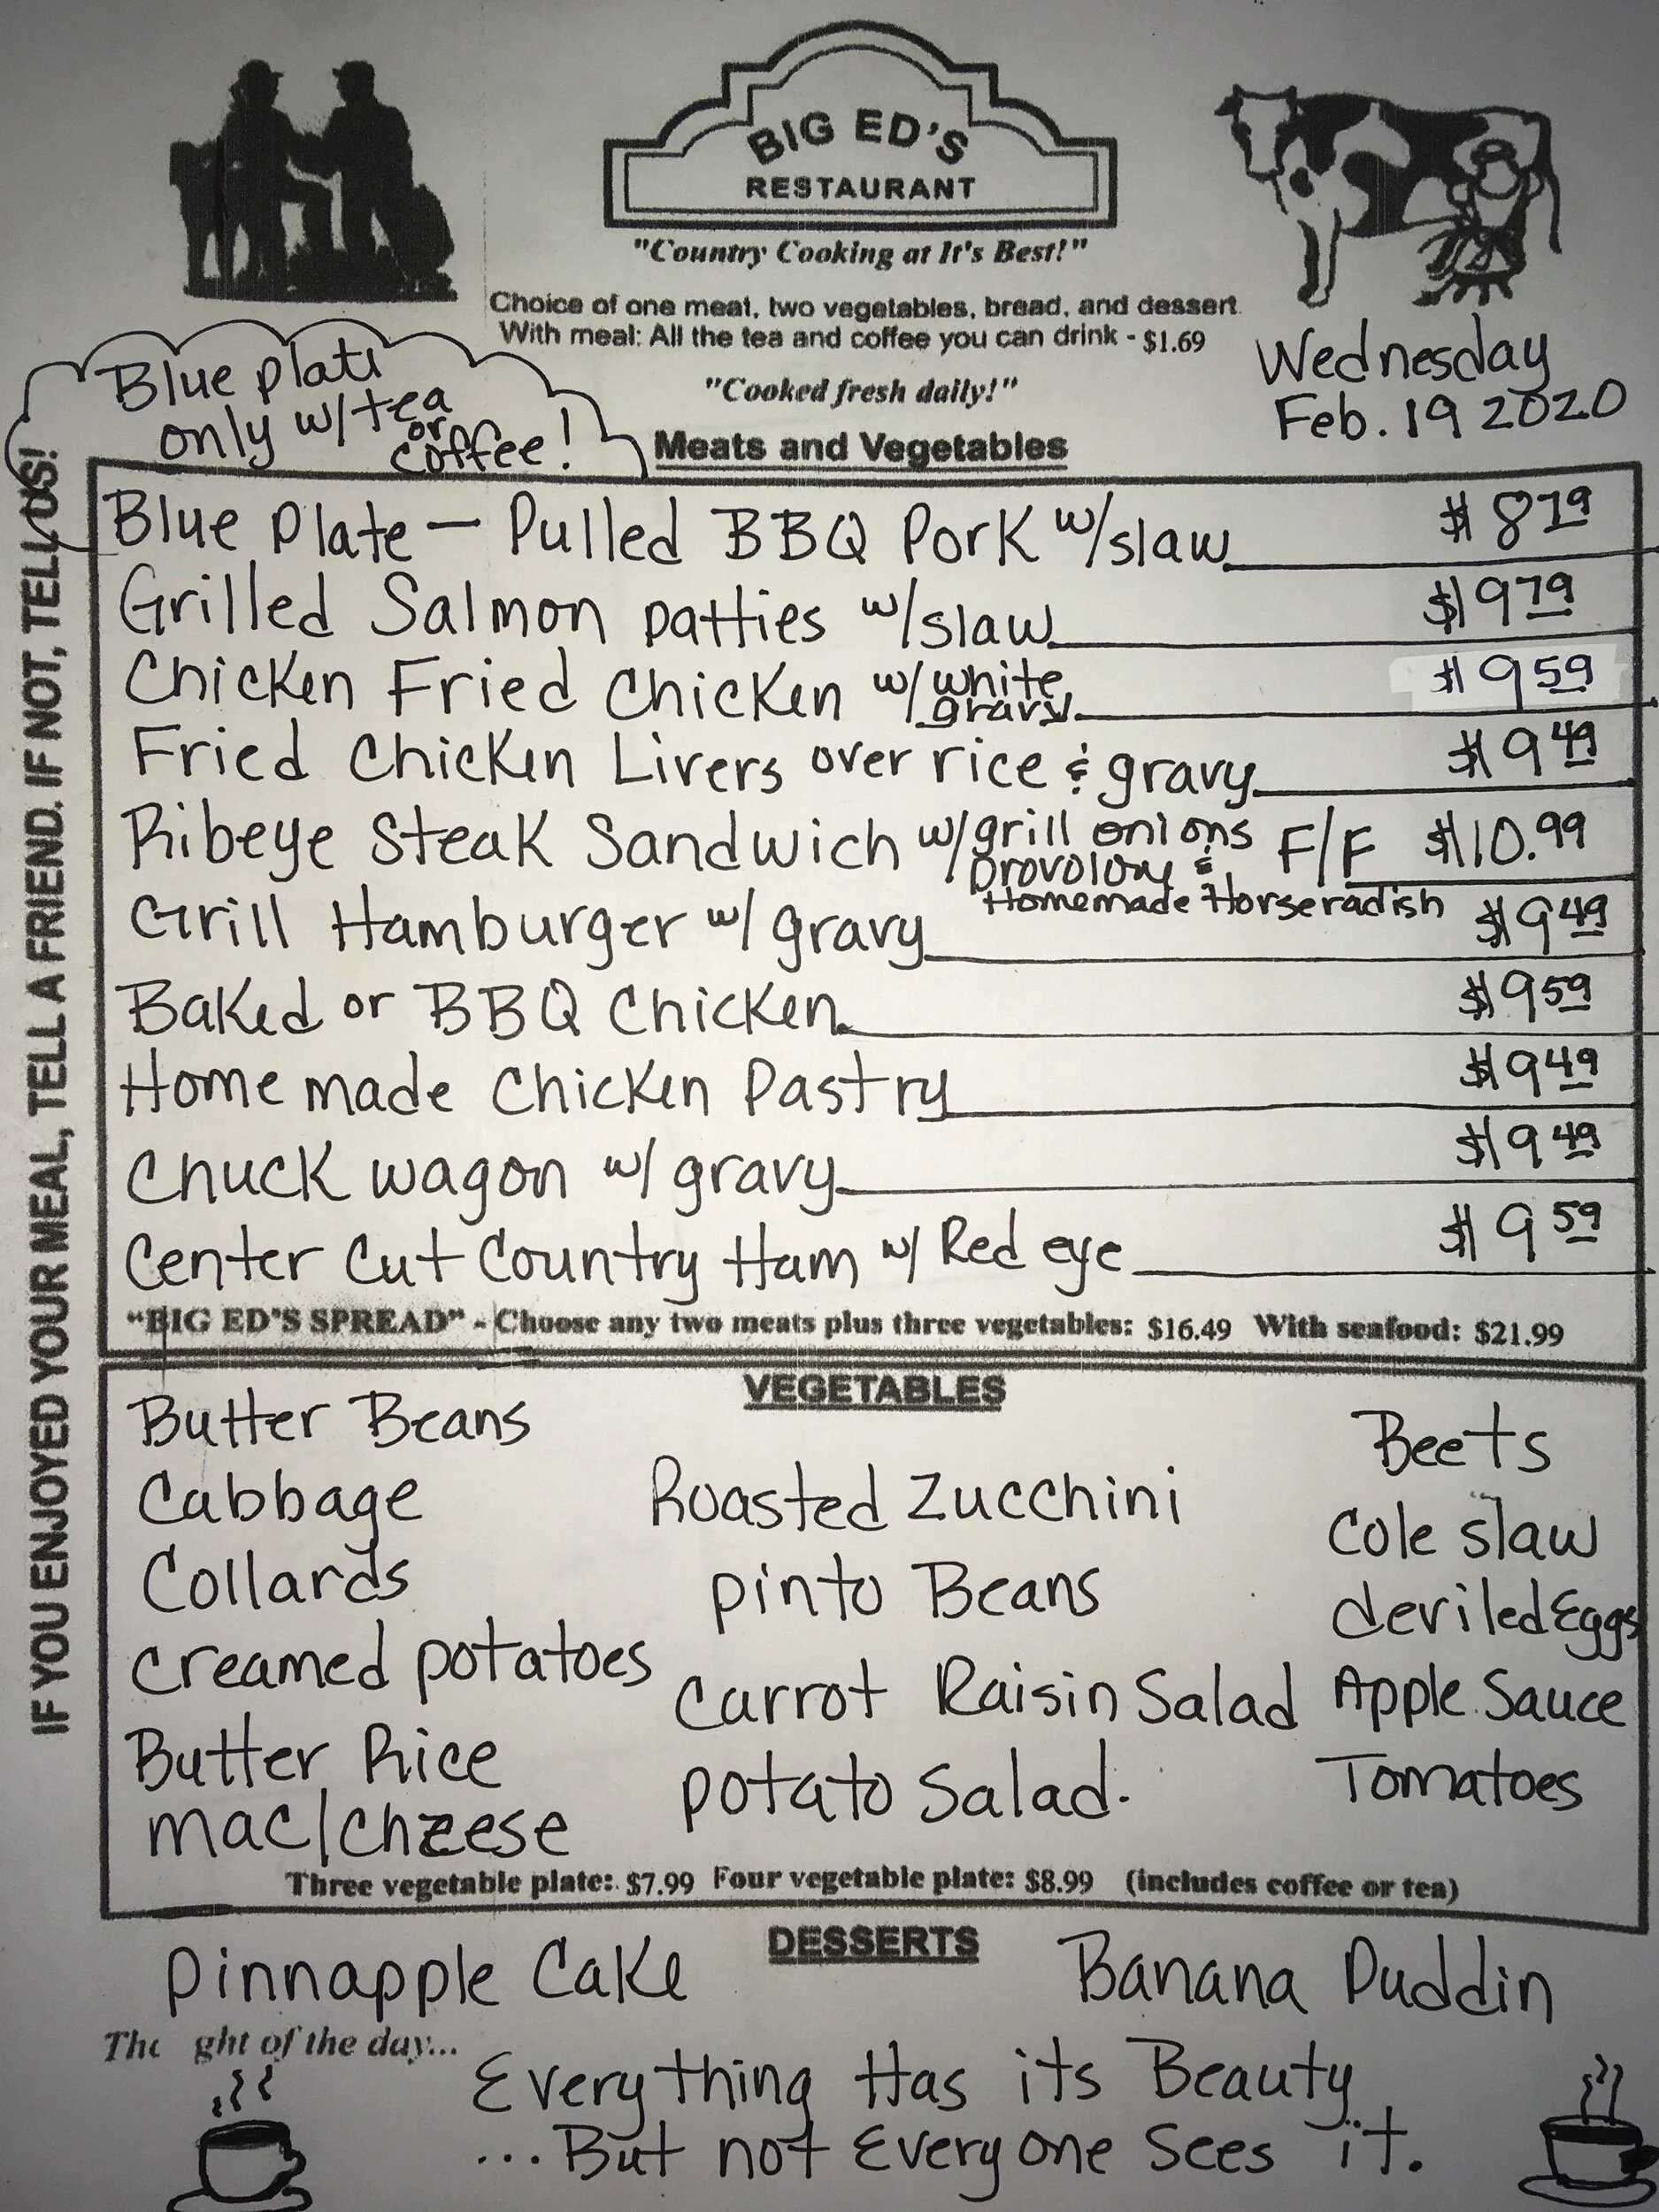 BIG ED'S
RESTAURANT
"Country Cooking at It's Best!"
Choice of one meat, two vegetables, bread, and dessert.
With meal: All the tea and coffee you can drink - $1.69
"Cooked fresh daily!"
Wednesday
Feb. 19 2020
Blue plate
only w/tea
or
coffee!
Meats and Vegetables
Blue Plate - Pulled BBQ Pork w/slaw $8.79
Grilled Salmon patties w/slaw $9.79
Chicken Fried Chicken w/white gravy $9.59
Fried Chicken Livers over rice & gravy $9.49
Ribeye Steak Sandwich w/grill onions F/F $10.99
provolone &
Homemade Horseradish
Grill Hamburger w/ gravy $9.49
Baked or BBQ Chicken $9.59
Homemade Chicken Pastry $9.49
Chuck wagon w/ gravy $9.49
Center Cut Country Ham w/ Red eye $9.59
"BIG ED'S SPREAD" - Choose any two meats plus three vegetables: $16.49 With seafood: $21.99
VEGETABLES
Butter Beans
Cabbage
Collards
Creamed potatoes
Butter Rice
mac/cheese
Roasted Zucchini
pinto Beans
Carrot Raisin Salad
potato Salad.
Beets
Cole slaw
deviled Eggs
Apple Sauce
Tomatoes
Three vegetable plate: $7.99 Four vegetable plate: $8.99 (includes coffee or tea)
DESSERTS
Pinnapple Cake
Banana Puddin
Tho ght of the day...
Everything Has its Beauty
...But not Everyone Sees it.
IF YOU ENJOYED YOUR MEAL, TELL A FRIEND. IF NOT, TELL US!